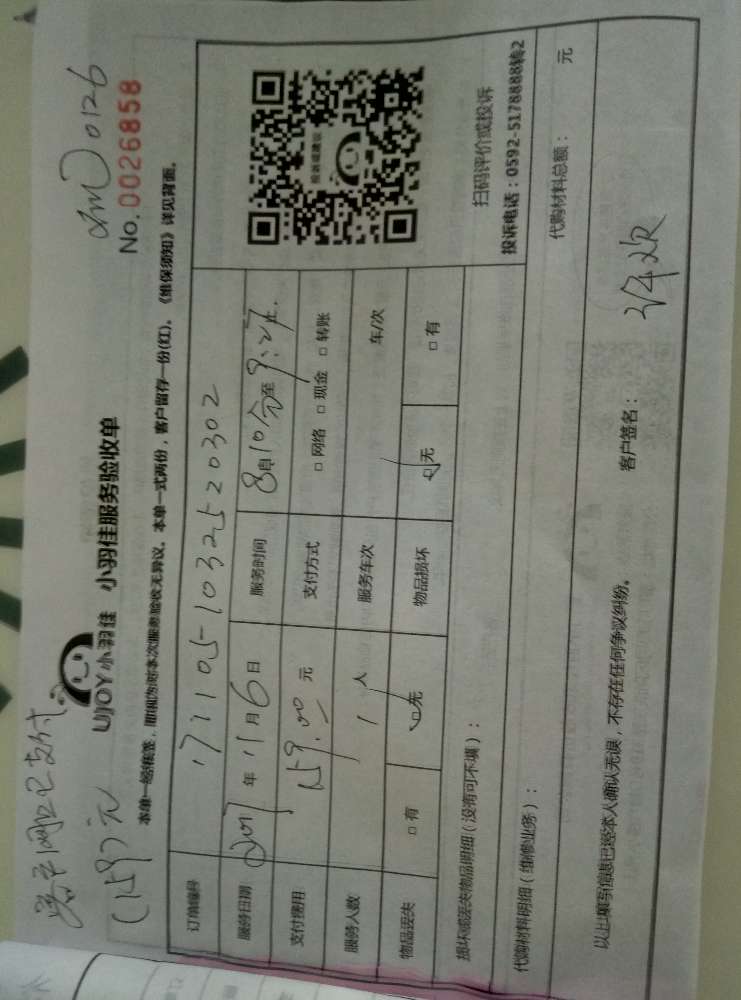 已支付
(159元)
0126
UJOY 小羽佳 小羽佳服务验收单
No.0026858
本单一式两份，客户留存一份(红)。《维保须知》详见背面。
订单编号 171105-1032520302
服务日期 2017年11月6日 服务时间 8时10分至9:27
支付费用 159.00元 支付方式 □网络 □现金 □转账
服务人数 1人 服务车次 车/次
物品丢失 □有 □无 物品损坏 □无 □有
投诉或建议
扫码评价或投诉
投诉电话：0592-5178888转2
损坏或丢失物品明细（没有可不填）：
代购材料明细（维修业务）： 代购材料总额： 元
以上填写信息已经本人确认无误，不存在任何争议纠纷。 客户签名：